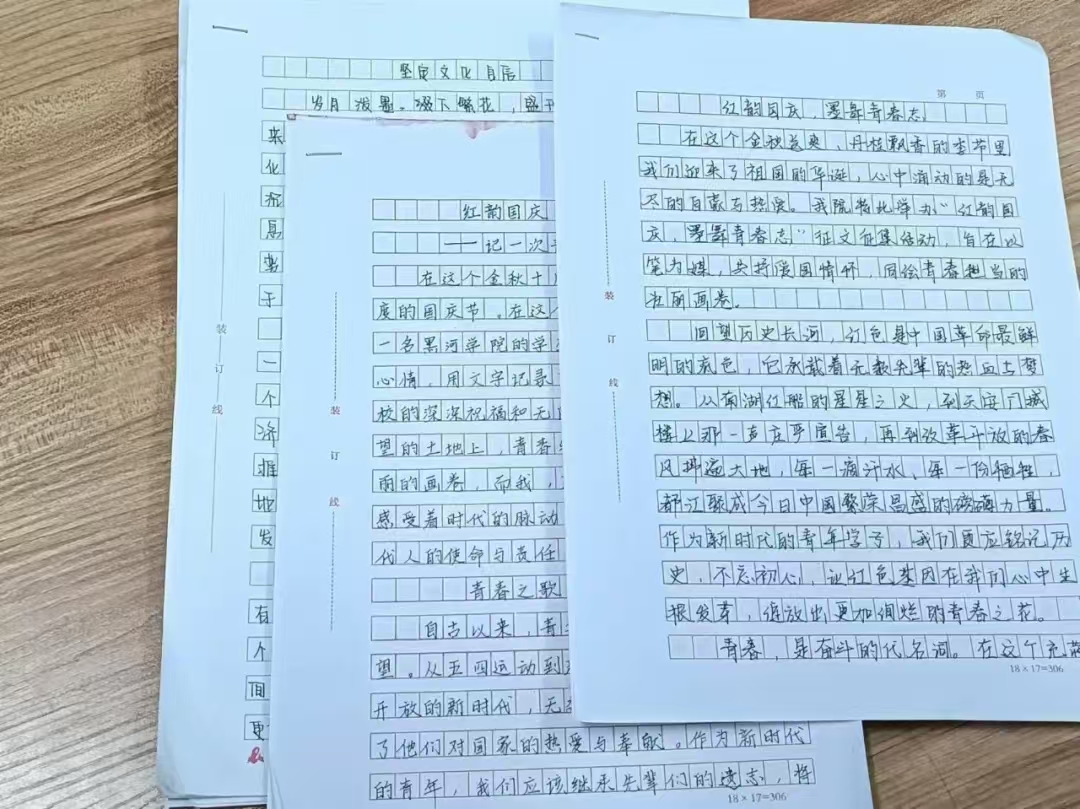 坚定文化自信
岁月泼墨。缀下繁花，盛开
来
化
息
于
一
个
济
推
地
发
有
个
间
更
装
订
线
红韵国庆
——记一次
在这个金秋十
度的国庆节。在这个
一名黑河学院的学
心情，用文字记录
校的深深祝福和无
望的土地上，青春
丽的画卷，而我，
感受着时代的脉动
代人的使命与责任
青春之歌
自古以来，青
望。从五四运动到
开放的新时代，无
了他们对国家的热爱与奉献。作为新时代
的青年，我们应该继承先辈们的遗志，将
18×17=306
装
订
线
第 页
红韵国庆，墨舞青春志
在这个金秋送爽、丹桂飘香的季节里
我们迎来了祖国的华诞，心中涌动的是无
尽的自豪与热爱。我院特此举办“红韵国
庆，墨舞青春志”征文征集活动，旨在以
笔为媒，共抒爱国情怀，同绘青春担当的
壮丽画卷。
回望历史长河，红色是中国革命最鲜
明的底色，它承载着无数先辈的热血与梦
想。从南湖红船的星星之火，到天安门城
楼上那一声庄严宣告，再到改革开放的春
风拂遍大地，每一滴汗水、每一份牺牲，
都汇聚成今日中国繁荣昌盛的磅礴力量。
作为新时代的青年学子，我们更应铭记历
史，不忘初心，让红色基因在我们心中生
根发芽，绽放出更加绚烂的青春之花。
青春，是奋斗的代名词。在这个充满
18×17=306
装
订
线